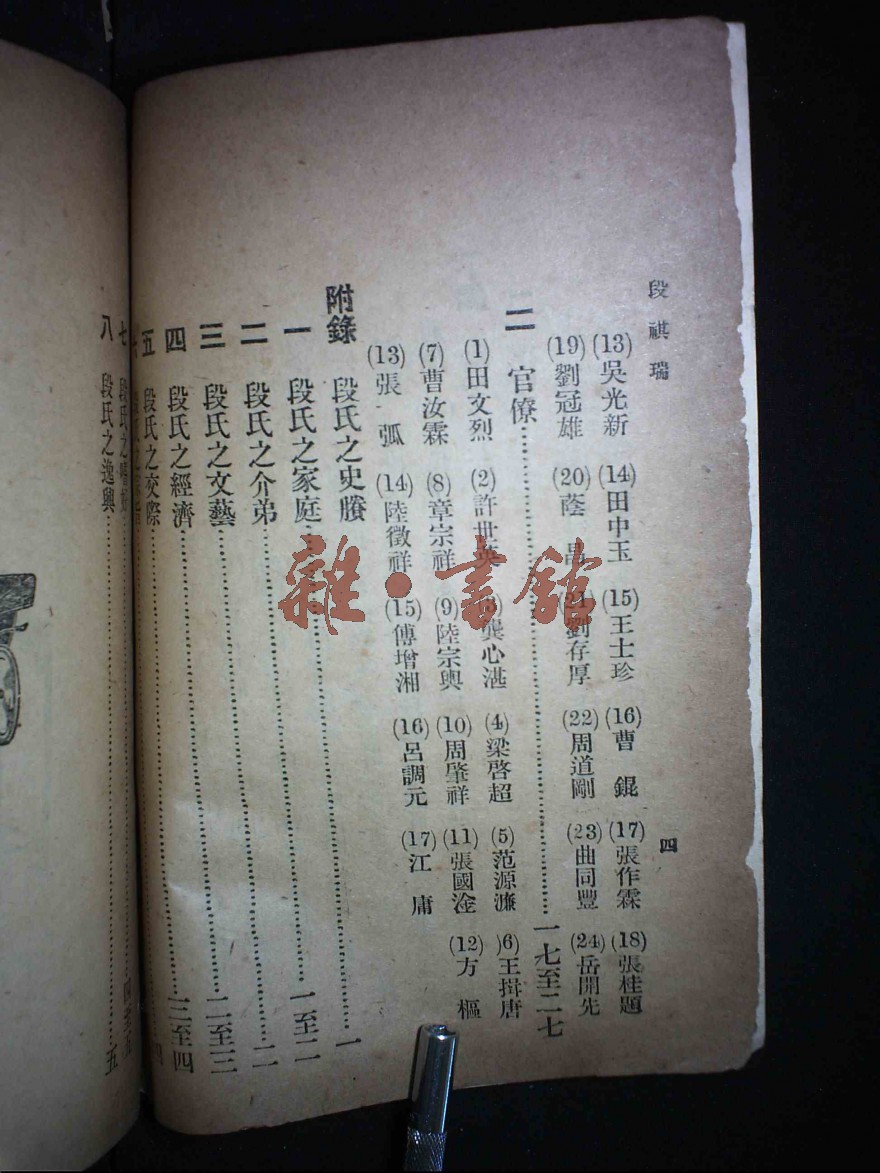 段祺瑞 四
(13)吳光新 (14)田中玉 (15)王士珍 (16)曹 錕 (17)張作霖 (18)張桂題
(19)劉冠雄 (20)蔭 昌 (21)劉存厚 (22)周道剛 (23)曲同豐 (24)岳開先
二 官僚……一七至二七
(1)田文烈 (2)許世英 (3)龔心湛 (4)梁啓超 (5)范源濂 (6)王揖唐
(7)曹汝霖 (8)章宗祥 (9)陸宗輿 (10)周肇祥 (11)張國淦 (12)方 樞
(13)張 弧 (14)陸徵祥 (15)傅增湘 (16)呂調元 (17)江 庸
附錄 段氏之史賸……一
一 段氏之家庭……一至二
二 段氏之介弟……二
三 段氏之文藝……二至三
四 段氏之經濟……三至四
五 段氏之交際……四
六
七 段氏之……四至五
八 段氏之逸興……五
雜·書館